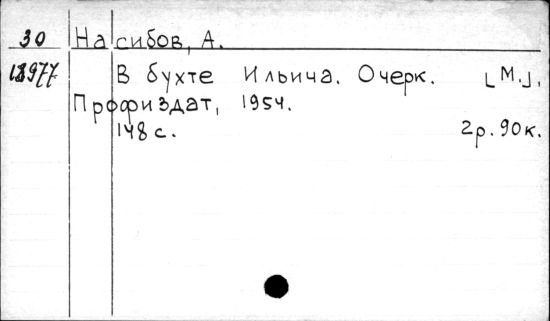 30 Насибов, А.
18977 В бухте Ильича. Очерк. [М.],
Профиздат, 1954.
148 с. 2р. 90к.